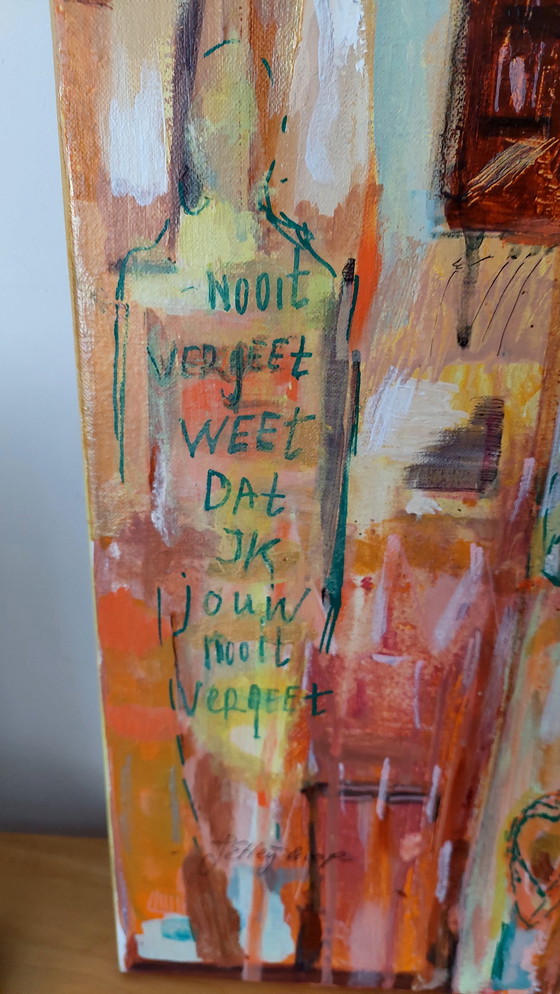 - NOOIT
VERGEET
WEET
DAT
IK
jouw
nooit
VERGEET